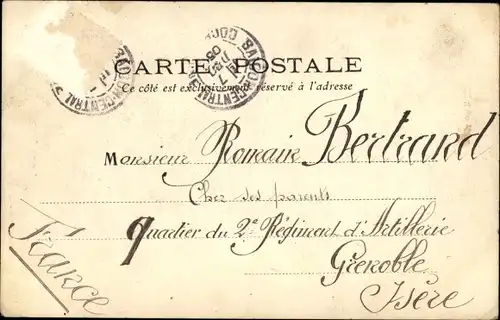 CARTE POSTALE
Ce côté est exclusivement réservé à l'adresse
Monsieur Romain Bertrand
Chez ses parents
Quartier du 2e Régiment d'Artillerie
Grenoble
Isère
France